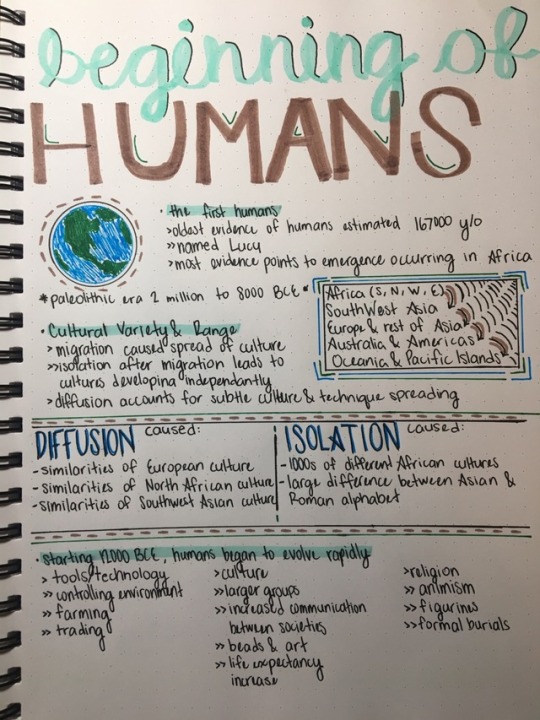 beginning of
HUMANS
· the first humans
>oldest evidence of humans estimated 167000 y/o
»named Lucy
>most evidence points to emergence occurring in Africa
*paleolithic era 2 million to 8000 BCE*
Africa (S, N, W, E)
SouthWest Asia
Europe & rest of Asia
Australia & Americas
Oceania & Pacific Islands
· Cultural Variety & Range
> migration caused spread of culture
»isolation after migration leads to
cultures developing independantly
> diffusion accounts for subtle culture & technique spreading
DIFFUSION caused:
-similarities of European culture
-similarities of North African culture
-similarities of Southwest Asian culture
ISOLATION caused:
-1000s of different African cultures
-large difference between Asian &
Roman alphabet
· starting 12000 BCE, humans began to evolve rapidly
> tools/technology
» controlling environment
» farming
» trading
>culture
»larger groups
»increased communication
between societies
» beads & art
» life expectancy
increase
>religion
» animism
» figurines
»formal burials